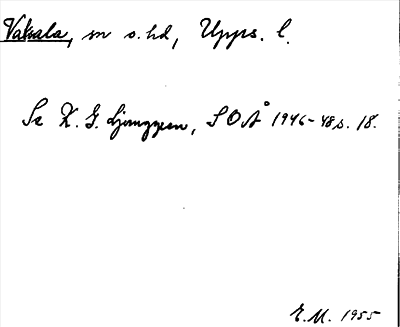 Vaksala, sn o. hd, Upps. l.
Se K. G. Ljunggren, SOÅ 1946-48 s. 18.
E.M. 1955